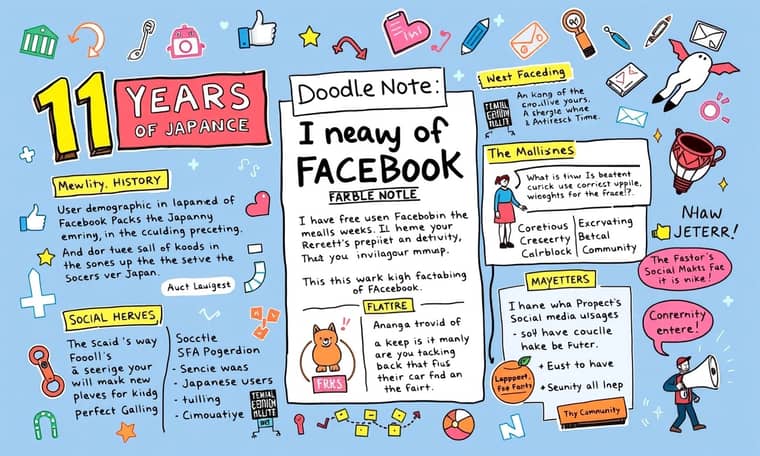 11
YEARS
OF JAPANCE
Mewlity. HISTORY
User demographic in lapamed of
Facebook Packs the Japanny
emring, in the cculding preceting.
And dor tuee sall of koods in
the sones up the the setve the
Socers ver Japan.
Auct Lauigest
SOCIAL HERVES
The scaid's way
Foooll's
a seerige your
will mask new
pleves for kindg
perfect Galling
Socctle
SFA Pogerdion
- Sencie waes
- Japanese users
- tulling
- Cimouatiye
Doodle Note:
I neawy of
FACEBOOK
FARBLE NOTLE
I have free usen Facebobin the
mealls weeks. Il heme your
Rereett's prepiiet an detivity,
That you invilagour mmup.
This this wark kigh factabing
of FAcebook.
FLATIRE
!!
FRKS
Ananga trovid of
a keep is it manly
are you tacking
back that fius
their car fnd an
the fairt.
West Faceding
An kong of the
A shergle whne
& Antiresck Time.
The Mallisnes
What is tiow Is beatent
curick use corriest upplie,
wioghts for the Frace!?.
Coretious
Cresecerty
Calrblock
Excryvating
Betcal
Community
MAYETTERS
I hane wha Propect's
Social media usages
- soły have couclle
hake be Futcr.
+ Eust to have
+ Seunity all Inep
Thy Community
Lappport,
Foe Fants
NHaw
JETERR!
The Fastor's
Social Makts Fae
it is nike!
Conrernity
entere!
N